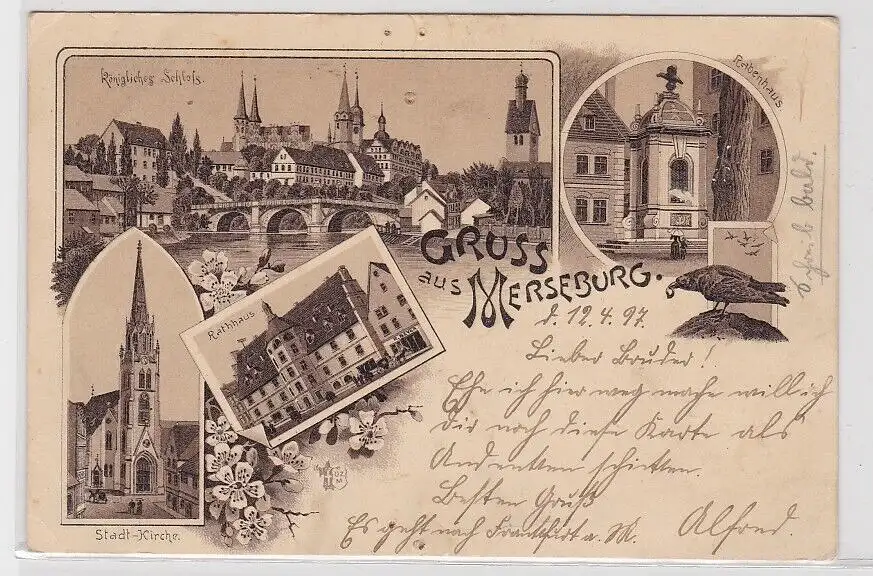 Königliches Schloß.
Rabenhaus.
GRUSS
aus MERSEBURG.
Rathhaus
Stadt-Kirche.
d. 12.4.97.
Lieber Bruder!
Ehe ich hier weg mache will ich
Dir noch diese Karte als
Andenken schicken.
Besten Gruß
Alfred.
Es geht nach Frankfurt a. M.
Schreib bald.